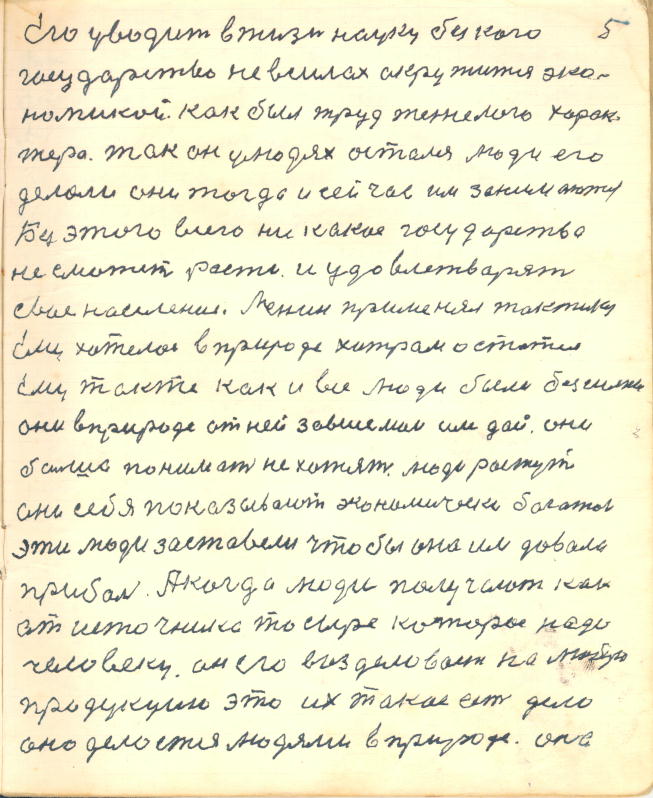 Его уводит в жизн науку без кого 5
государство не всилах окружится эко-
номикой. Как был труд тежелого харак-
тера. так он у людях остался люди его
делали они тогда и сейчас им занимаются
Без этого всего ни какое государства
не сможет расти. и удовлетварят
свое население. Ленин применял тактику
Ему хотелос в природе хитрам остатся
Ему также как и все люди были безсилны
они в природе от ней зависемои им дай. они
болша понимат не хотят. люди ростут
они себя показывают экономически богатои
эти люди заставели чтобы она им довала
прибол. А когда люди получают как
от источника то сыре которое надо
человеку. он его визделоваит на любую
продукцию это их такое ест дело
оно делостся людями в природе. она